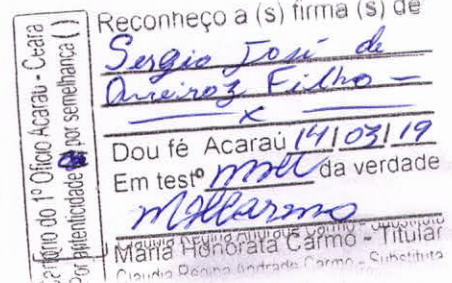 Cartório do 1º Ofício Acaraú - Ceara
Por autenticidade ( ) por semelhança ( )
Reconheço a (s) firma (s) de
Sergio José de
Queiroz Filho —
x
Dou fé Acaraú 14/03/19
Em testº da verdade
Maria Honorata Carmo - Titular
Claudia Regina Andrade Carmo - Substituta